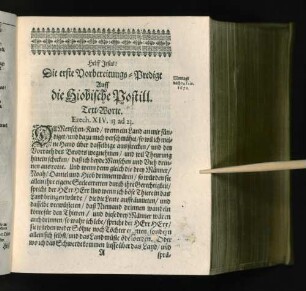 Hilff Jesu!
Die erste Vorbereitungs-Predigt
Auff
die Hiobische Postill.
Text-Worte.
Ezech. XIV. 13
Du Menschen-Kind / wenn ein Land an mir sün-
diget / und dazu mich verschmähet / so will ich mei-
ne Hand über dasselbige ausstrecken / und den
Vorrath des Brodtes wegnehmen / und will Theurung
hinein schicken / daß ich beyde Menschen und Vieh drin-
nen ausrotte. Und wenn denn gleich die drey Männer /
Noah / Daniel und Hiob drinnen wären / so würden sie
allein ihre eigene Seele erretten durch ihre Gerechtigkeit /
spricht der HErr HErr / und wenn ich böse Thiere in das
Land bringen würde / die die Leute auffräumeten / und
daselbe verwüsteten / daß Niemand drinnen wandeln
könte für den Thieren / und diese drey Männer wären
auch drinnen: so wahr ich lebe / spricht der HErr HErr /
sie würden weder Söhne noch Töchter sondern
allein sich selbst / und das Land müste öde werden. Oder
wo ich das Schwerdt kommen liesse über das Land / und
A
sprä-